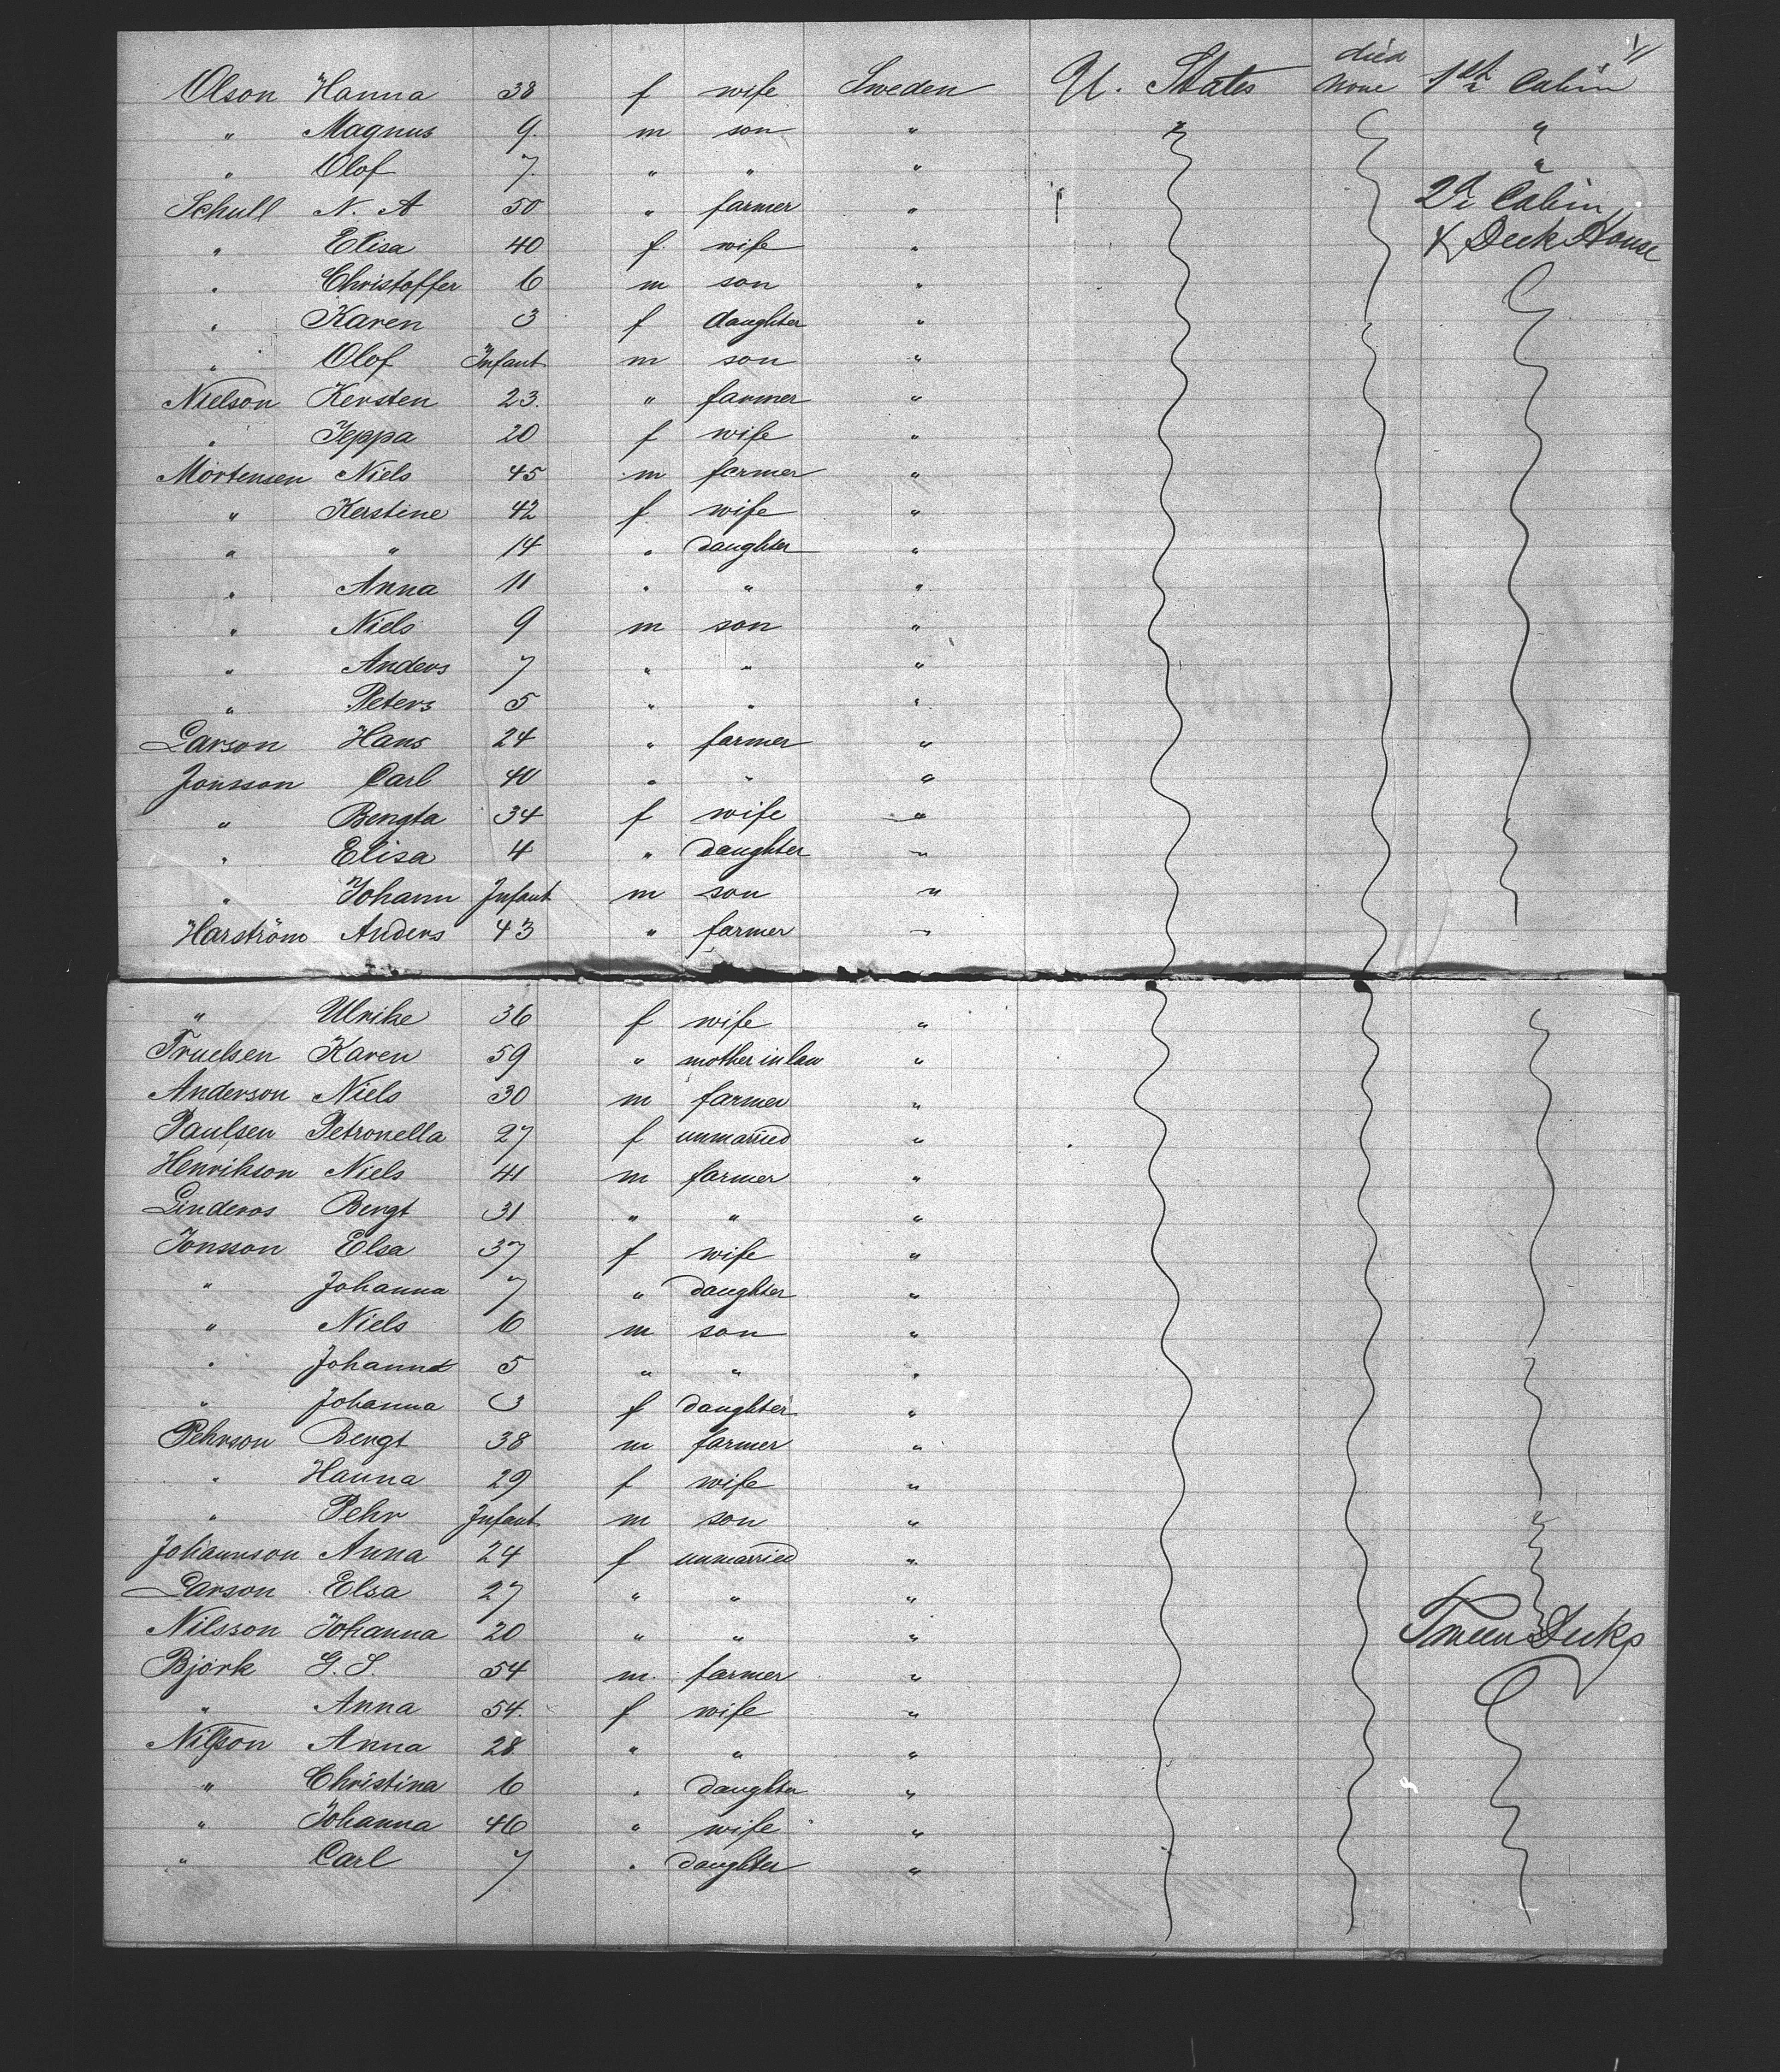 Olson Hanna 38 f wife Sweden U. States died none 1st Cabin
" Magnus 9. m son " "
" Olof 7. " " " "
Schull N. A 50 " farmer " 2d Cabin
" Elisa 40 f wife " & Deck House
" Christoffer 6 m son "
" Karen 3 f daughter "
" Olof Infant m son "
Nielson Kersten 23. " farmer "
" Jeppa 20 f wife "
Mortensen Niels 45 m farmer "
" Kerstine 42 f wife "
" " 14 " daughter "
" Anna 11 " " "
" Niels 9 m son "
" Anders 7 " " "
" Peters 5 " " "
Larson Hans 24 " farmer "
Jonsson Carl 40 " " "
" Bengta 34 f wife "
" Elisa 4 " daughter "
" Johann Infant m son "
Harström Anders 43 " farmer "
" Ulrike 36 f wife "
Truelsen Karen 59 " mother in law "
Anderson Niels 30 m farmer "
Paulsen Petronella 27 f unmarried "
Henrikson Niels 41 m farmer "
Linderos Bengt 31 " " "
Jonsson Elsa 37 f wife "
" Johanna 7 " daughter "
" Niels 6 m son "
" Johannes 5 " " "
" Johanna 3 f daughter "
Pehrson Bengt 38 m farmer "
" Hanna 29 f wife "
" Pehr Infant m son "
Johannson Anna 24 f unmarried "
Larson Elsa 27 " " "
Nilsson Johanna 20 " " " Tween Decks
Björk G. S. 54 m. farmer "
" Anna 54. f wife "
Nilsson Anna 28 " " "
" Christina 6 " daughter "
" Johanna 46 " wife "
" Carl 7 " daughter "